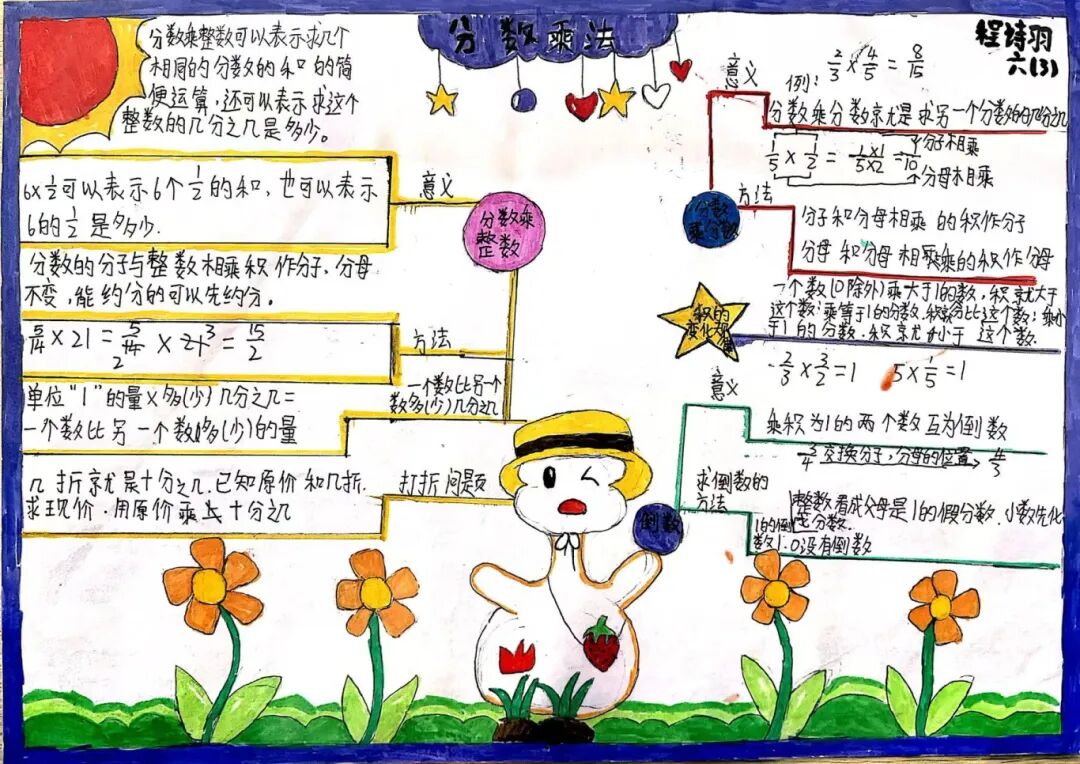 分数乘法
程诗羽
六(3)
分数乘整数可以表示求几个
相同的分数的和的简
便运算,还可以表示求这个
整数的几分之几是多少。
6×1/2可以表示6个1/2的和,也可以表示
6的1/2是多少.
意义
分数乘
整数
分数的分子与整数相乘积作分子,分母
不变,能约分的可以先约分。
5/14×21=5/14×21=15/2
2
3
方法
单位“1”的量×多(少)几分之几=
一个数比另一个数多(少)的量
一个数比另一个
数多(少)几分之几
几折就是十分之几.已知原价和几折.
求现价,用原价乘十分之几
打折问题
意义
例:2/3×4/5=8/15
分数乘分数就是求另一个分数的几分之几
1/5×1/2=1×1/5×2=1/10
分子相乘
分母相乘
分数
乘分数
方法
分子和分母相乘的积作分子
分母和分母相乘乘的积作分母
积的
变化
一个数(0除外)乘大于1的数,积就大于
这个数:乘等于1的分数.积 比这个数:乘小
于1的分数.积就小于这个数.
2/3×3/2=1 5×1/5=1
意义
乘积为1的两个数互为倒数
3/4交换分子,分母的位置→4/3
倒数
求倒数的
方法
整数看成父母是1的假分数.小数先化
成分数.
1的倒
数1.0没有倒数